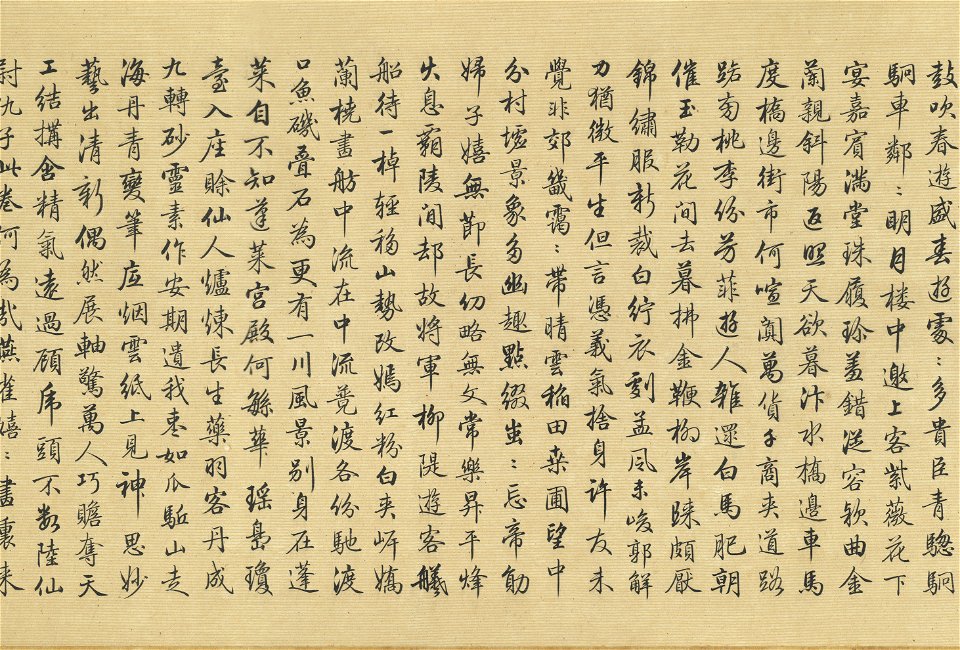 鼓吹春遊盛春遊處〻多貴臣青驄駉
駉車鄰〻明月楼中邀上客紫薇花下
宴嘉賓満堂珠履珎羞錯從容欵曲金
蘭親斜陽返照天欲暮汴水橋邊車馬
度橋邊街市何喧闐萬貨子商夾道路
路旁桃李份芳菲遊人雜遝白馬肥朝
催玉勒花间去暮拂金鞭柳岸歸頗厭
錦繡服新裁白紵衣劇孟風未峻郭解
刀猶微平生但言憑義氣捨身許友未
覺非郊畿靄〻帶晴雲稲田桒圃望中
分村墟景象多幽趣點缀出〻忘帝勛
婦子嬉無節長幼略無文常樂昇平烽
火息覇陵间却故將軍柳隄遊客艤
船待一棹輕移山勢改嫣红粉白夹岸嬌
蘭橈畫舫中流在中流竞渡各份馳渡
口魚磯叠石為更有一川風景别身在蓬
莱自不知蓬莱宮殿何緐華瑶島瓊
臺入座賒仙人爐煉長生藥羽客丹成
九轉砂靈素作安期遺我枣如瓜駈山走
海丹青變筆底烟雲纸上見神思妙
藝出清新偶然展軸驚萬人巧贍奪天
工結搆含精氣遠過顾虎頭不數陸仙
尉九子此卷何為哉燕雀嬉〻畫裏来